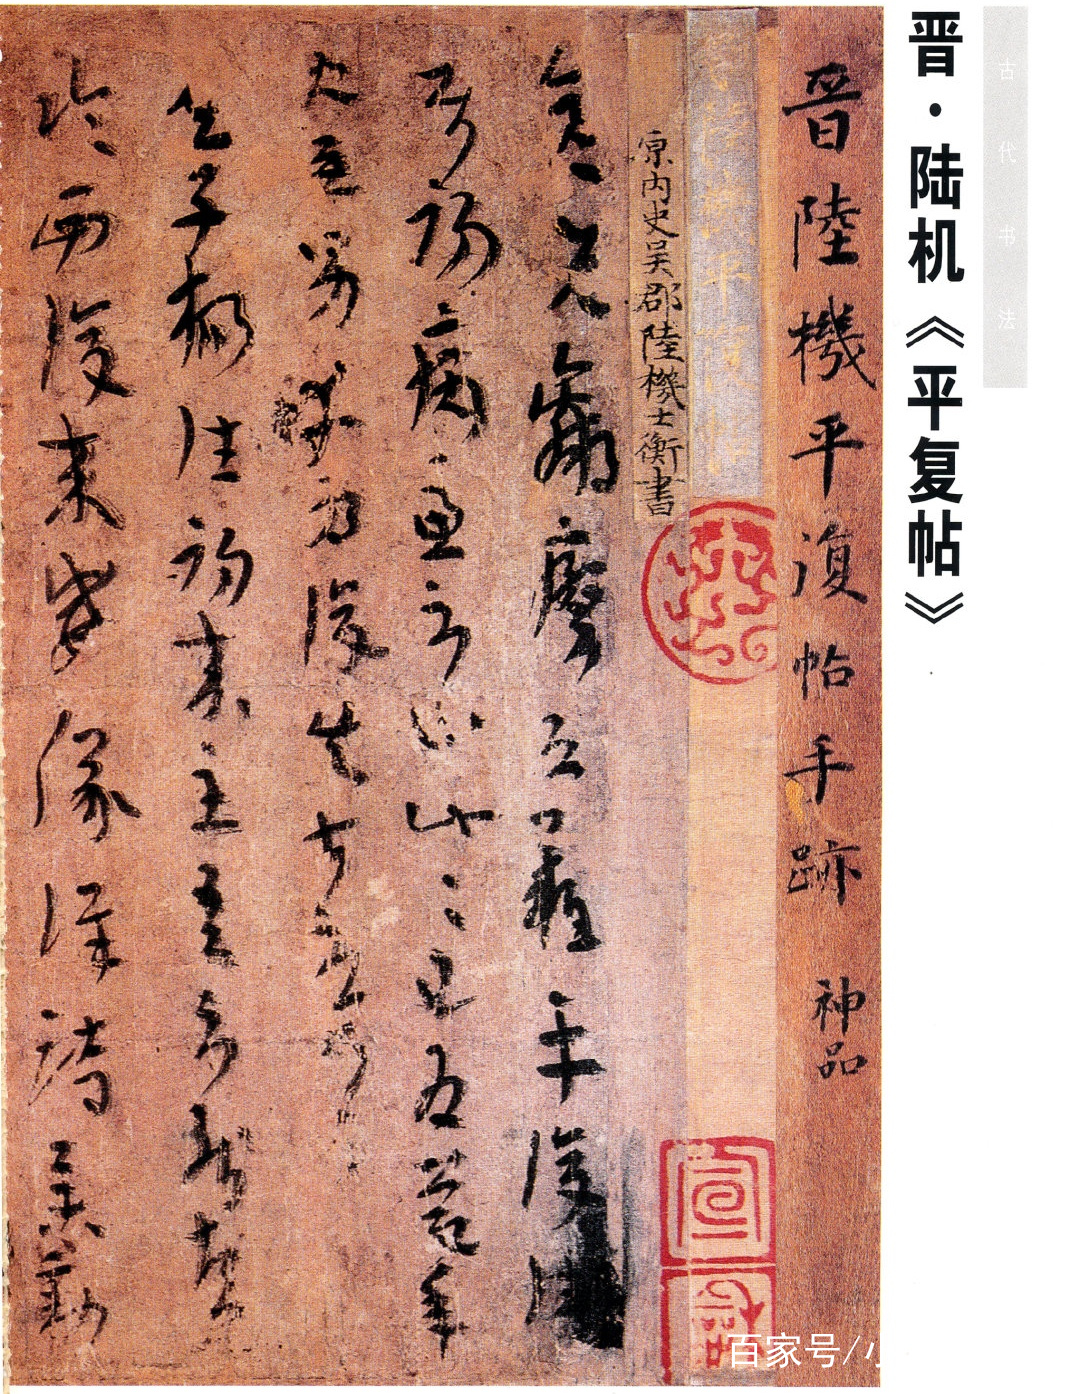 古代书法
晋·陆机《平复帖》
晉陸機平復帖手跡 神品
原内史吴郡陸機士衡書
彦先羸瘵恐難平復
初病慮不止此已為慶承
使唯男幸為復失前憂耳
吴子楊往初来主吾不能盡
臨西復来威儀詳跱舉動
百家号/